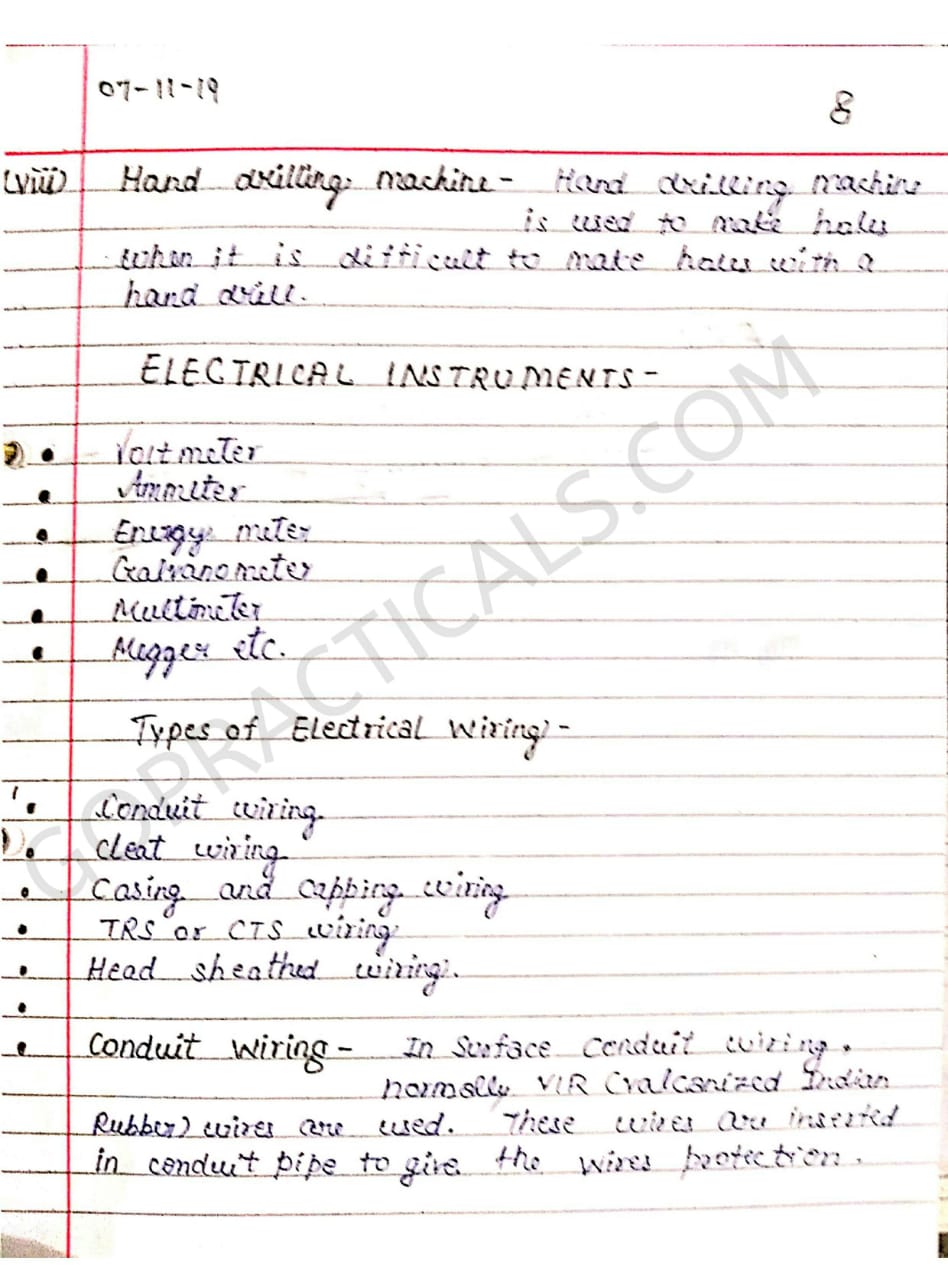 07-11-19
8
(viii) Hand drilling machine - Hand drilling machine
is used to make holes
when it is difficult to make holes with a
hand drill.
ELECTRICAL INSTRUMENTS -
• Voltmeter
• Ammeter
• Energy meter
• Galvanometer
• Multimeter
• Megger etc.
Types of Electrical Wiring -
• Conduit wiring
• Cleat wiring
• Casing and Capping wiring
• TRS or CTS wiring
• Head sheathed wiring.
•
• Conduit Wiring - In Surface Conduit wiring,
normally VIR (Valcanized Indian
Rubber) wires are used. These wires are inserted
in conduit pipe to give the wires protection.
GOPRACTICALS.COM